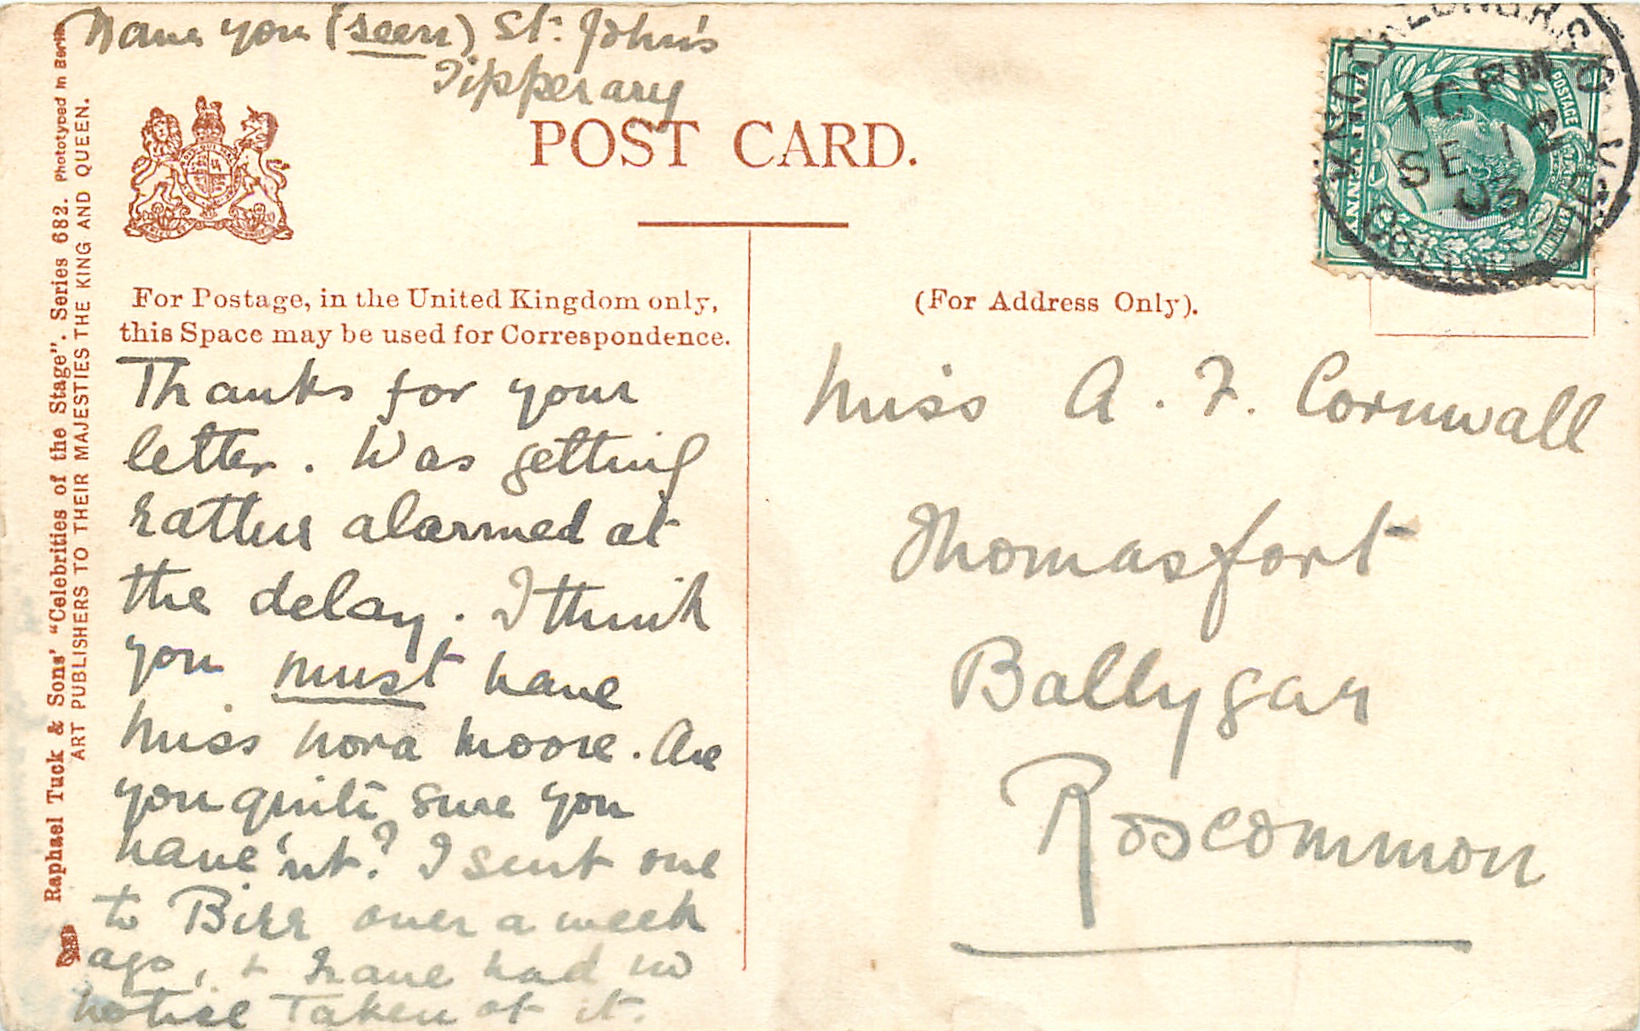 Have you (seen) St: John's
Tipperary
POST CARD.
For Postage, in the United Kingdom only,
this Space may be used for Correspondence.
(For Address Only).
Thanks for your
letter. Was getting
rather alarmed at
the delay. I think
you must have
Miss Nora Moore. Are
you quite sure you
have'nt? I sent one
to Birr over a week
ago, & have had no
notice taken of it.
Miss A. F. Cornwall
Thomasfort
Ballygar
Roscommon
Raphael Tuck & Sons' "Celebrities of the Stage". Series 682. Phototyped in Berlin
ART PUBLISHERS TO THEIR MAJESTIES THE KING AND QUEEN.
POSTAGE
HALFPENNY
PM
SE 12
03